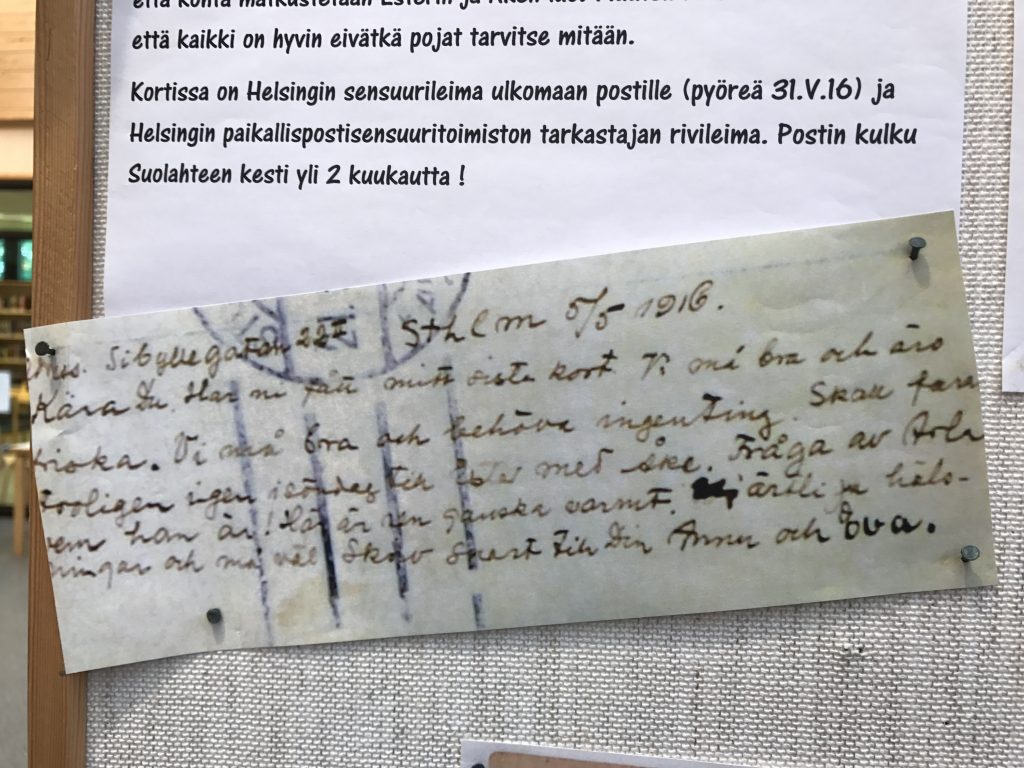 että kohta matkustetaan Esterin ja
että kaikki on hyvin eivätkä pojat tarvitse mitään.
Kortissa on Helsingin sensuurileima ulkomaan postille (pyöreä 31.V.16) ja
Helsingin paikallispostisensuuritoimiston tarkastajan rivileima. Postin kulku
Suolahteen kesti yli 2 kuukautta !
Sibyllegatan 22 II Sthlm 5/5 1916.
Kära Du. Har ni fått mitt sista kort Vi må bra och äro
friska. Vi må bra och behöva ingenting. Skall fara
troligen igen söndag till med Åke. Fråga av
vem han är! Här är ren ganska varmt. Hjärtliga häls-
ningar och må väl Skriv snart till Din Anna och Eva.